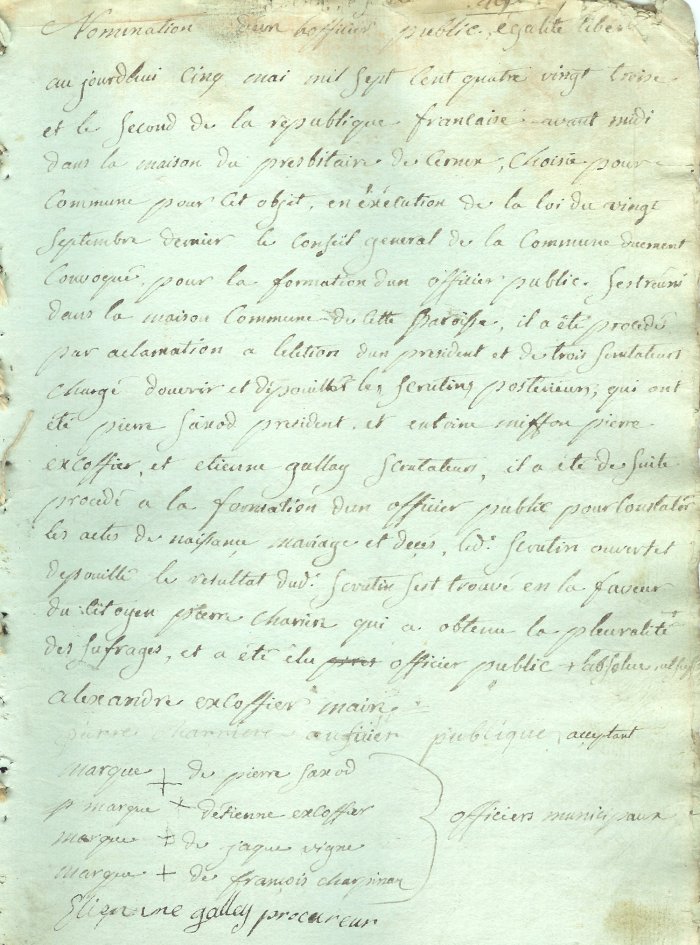 Nomination d'un hofficier public, egalité liber
au jourdhui Cinq mai mil sept Cent quatre vingt troise
et le second de la republique francaise avant midi
dans la maison du presbitaire de Cernex, Choisie pour
Commune pour Cet objet, en éxécution de la loi du vingt
septembre dernier le Conseil general de la Commune duement
Convoqué, pour la formation dun officier public. Sestreuni
dans la maison Commune de Cette Paroisse, il a été procédé
par aclamation a léletion dun president et de trois scrutateurs
Chargé douvrir et dépouiller les scrutins posterieurs, qui ont
été pierre Saxod president, et entoine miffon pierre
excoffier, et etienne gallay scrutateurs, il a été de suite
procedé a la formation dun officier public pour Constater
les actes de naissance mariage et deces, led. scrutin ouvert et
depouillé le resultat dud. scrutin sest trouvé en la faveur
du Citoyen pierre Charier qui a obtenu la pluralité
des sufrages, et a été élu officier public + absolue
alexandre excoffier maire
pierre Charriere aufisier publique, acceptant
marque + de pierre saxod
p marque + détienne excoffier
marque + de jaque vigne officiers municipaux
marque + de françois
Etienne galley procureur